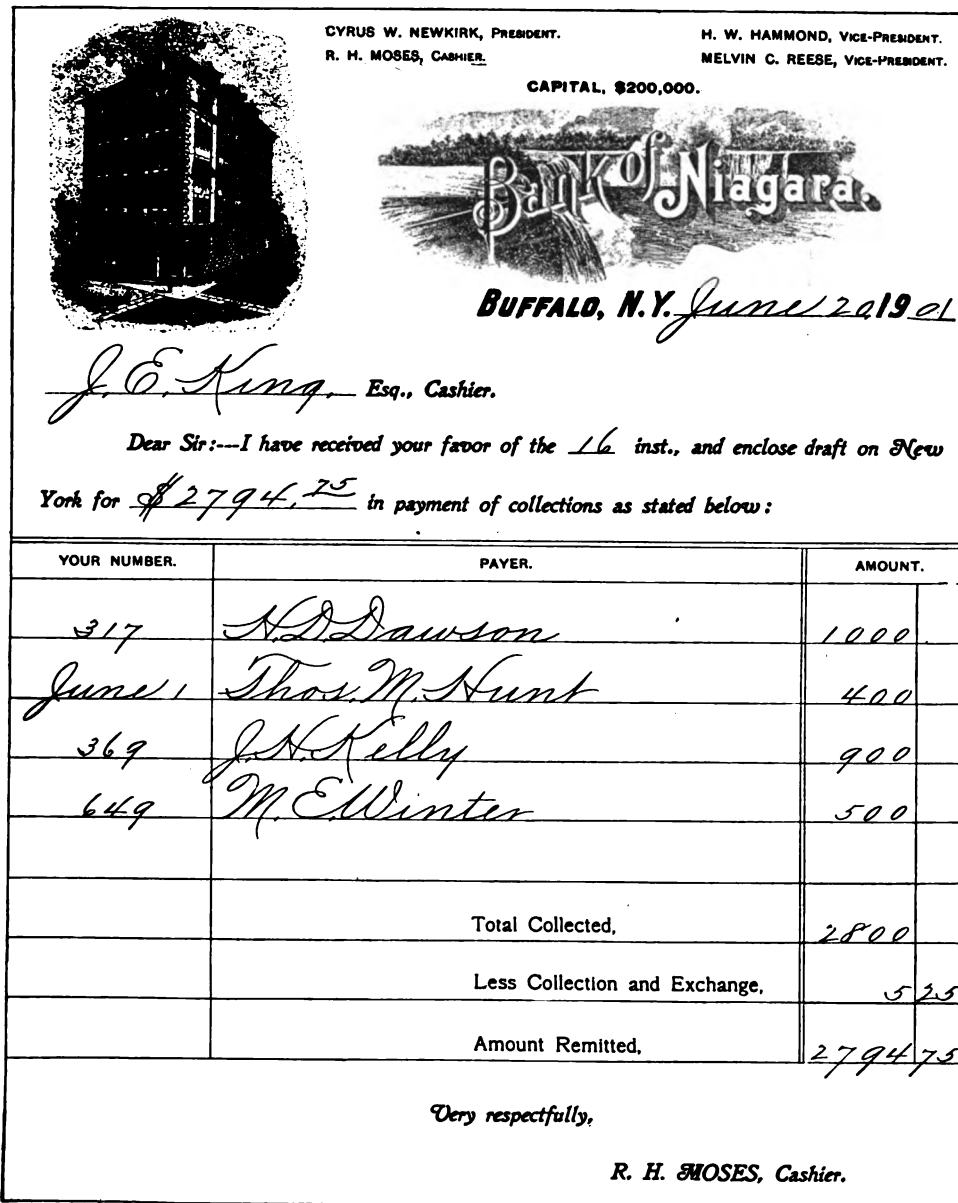 CYRUS W. NEWKIRK, PRESIDENT. H. W. HAMMOND, VICE-PRESIDENT.
R. H. MOSES, CASHIER. MELVIN C. REESE, VICE-PRESIDENT.
CAPITAL, $200,000.
Bank of Niagara.
BUFFALO, N.Y. June 20, 1901
J. E. King, Esq., Cashier.
Dear Sir:---I have received your favor of the 16 inst., and enclose draft on New
York for $2794.75 in payment of collections as stated below:
YOUR NUMBER. PAYER. AMOUNT.
317 H. D. Dawson 1000
June 1 Thos. M. Hunt 400
369 J. H. Kelly 900
649 M. E. Winter 500
Total Collected, 2800
Less Collection and Exchange, 5 25
Amount Remitted, 2794 75
Very respectfully,
R. H. MOSES, Cashier.